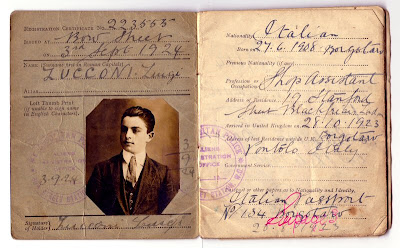 REGISTRATION CERTIFICATE No. 223565
ISSUED AT Bow Street
ON 3rd Sept 1924
NAME (Surname first in Roman Capitals)
LUCCONI Luigi
ALIAS
Left Thumb Print
(if unable to sign name
in English Characters).
3-9-24
Signature of Holder
Lucconi Luigi
Nationality Italian
Born on 27.6.1908 in Borgotaro
Previous Nationality (if any)
Profession or Occupation Shop Assistant
Address of Residence 19 Stamford
Street Blackfriars
Arrived in United Kingdom on 28.10.1923
Address of last Residence outside U.K. Borgotaro
Pontolo Italy
Government Service
Passport or other Papers as to Nationality and Identity.
Italian Passport
No 104 Borgotaro
1923